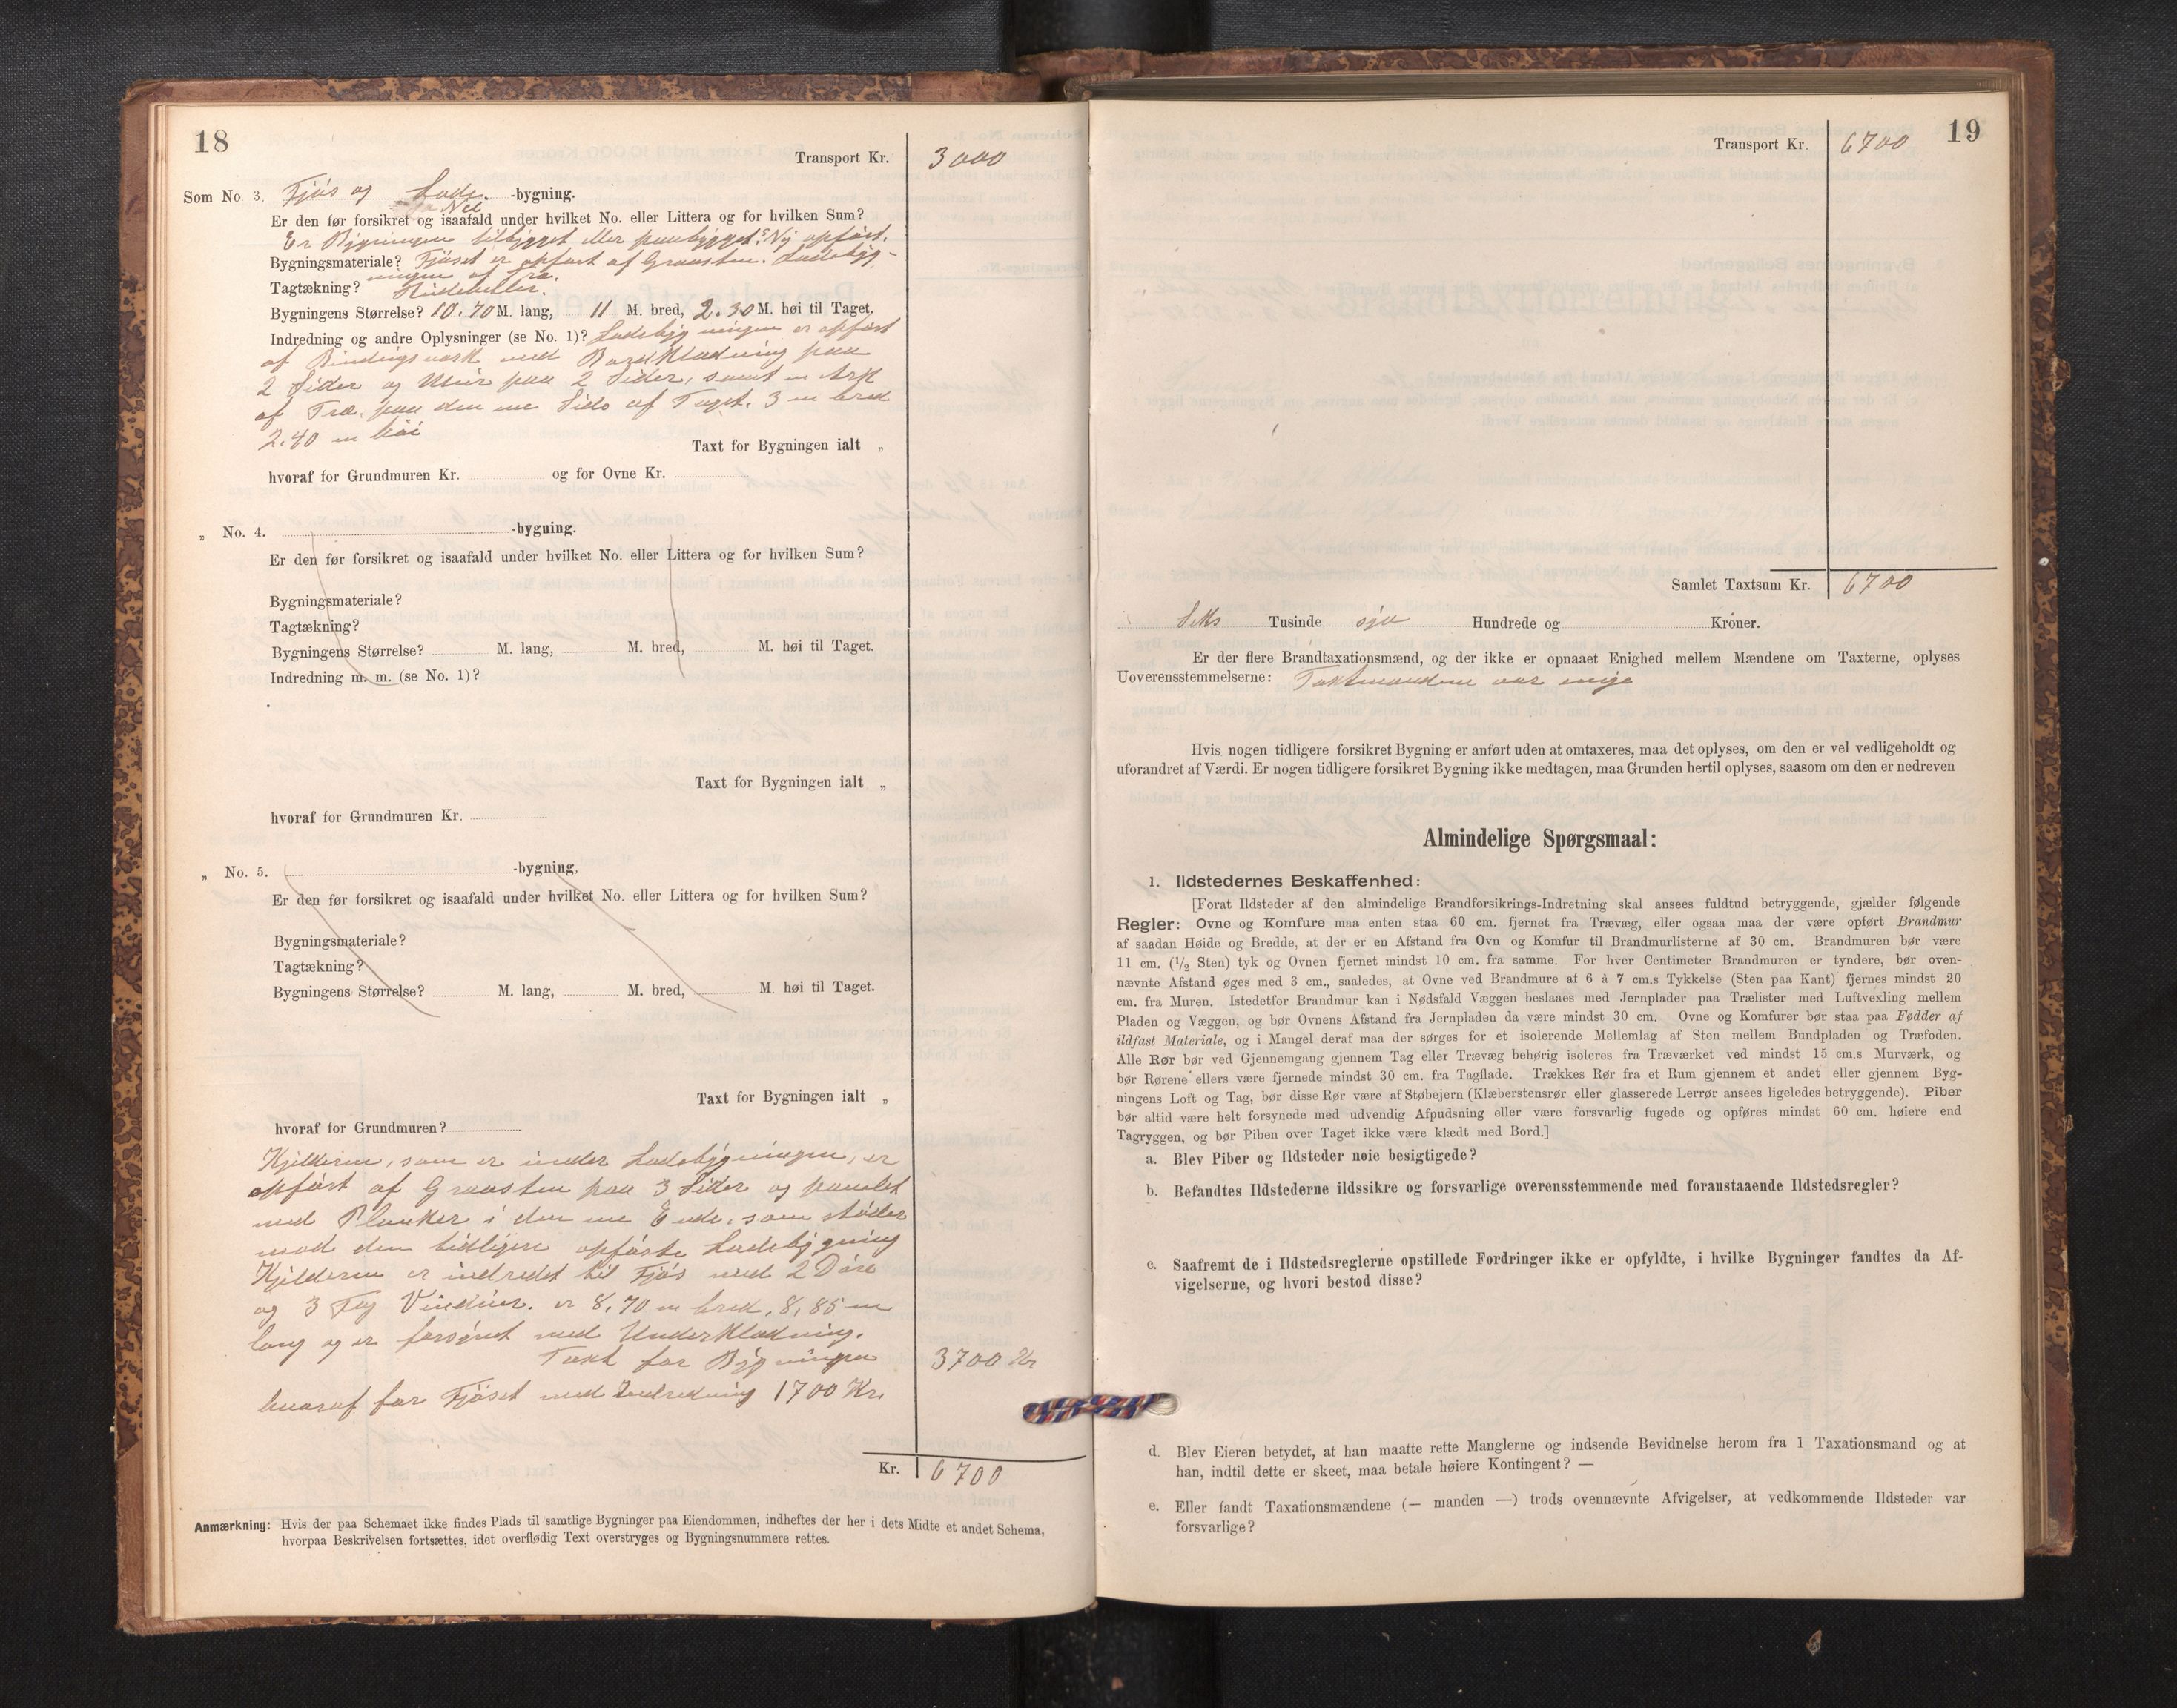 18
Transport Kr. 3000
Som No 3. Fjøs og Lade. -bygning.
Er den før forsikret og isaafald under hvilket No. eller Littera og for hvilken Sum? Nei
Er Bygningen tilbygget eller paabygget? Ny opført.
Bygningsmateriale? Fjøset er opført af Graasten. Ladebyg-
ningen af Træ.
Tagtækning?
Bygningens Størrelse? 10.70 M. lang, 11 M. bred, 2.30 M. høi til Taget.
Indredning og andre Oplysninger (se No. 1)? Ladebygningen er opført
af Bindingsværk med Bordklædning paa
2 Sider og Mur paa 2 Sider, samt en Ark
af Træ, paa den ene Side af Taget. 3 m bred
2.40 m høi
Taxt for Bygningen ialt „
hvoraf for Grundmuren Kr. og for Ovne Kr.
„ No. 4. -bygning.
Er den før forsikret og isaafald under hvilket No. eller Littera og for hvilken Sum?
Bygningsmateriale?
Tagtækning?
Bygningens Størrelse? M. lang, M. bred, M. høi til Taget.
Indredning m. m. (se No. 1)?
Taxt for Bygningen ialt „
hvoraf for Grundmuren Kr.
„ No. 5. -bygning,
Er den før forsikret og isaafald under hvilket No. eller Littera og for hvilken Sum?
Bygningsmateriale?
Tagtækning?
Bygningens Størrelse? M. lang, M. bred, M. høi til Taget.
Taxt for Bygningen ialt „
hvoraf for Grundmuren?
Kjelderen, som er under Ladebygningen, er
opført af Graasten paa 3 Sider og panelet
med Planker i den ene Ende, som støder
mod den tidligere opførte Ladebygning
Kjelderen er indredet til Fjøs med 2 Døre
og 3 Fag Vinduer. er 8,70 m bred, 8,85 m
lang og er forsynet med Underklædning.
Taxt for Bygningen 3700 Kr
hvoraf for Fjøset med Indredning 1700 Kr.
Kr. 6700
Anmærkning: Hvis der paa Schemaet ikke findes Plads til samtlige Bygninger paa Eiendommen, indheftes der her i dets Midte et andet Schema,
hvorpaa Beskrivelsen fortsættes, idet overflødig Text overstryges og Bygningsnummere rettes.
19
Transport Kr. 6700
Samlet Taxtsum Kr. 6700
Seks Tusinde syv Hundrede og Kroner.
Er der flere Brandtaxationsmænd, og der ikke er opnaaet Enighed mellem Mændene om Taxterne, oplyses
Uoverensstemmelserne: Taxtmændene var enige
Hvis nogen tidligere forsikret Bygning er anført uden at omtaxeres, maa det oplyses, om den er vel vedligeholdt og
uforandret af Værdi. Er nogen tidligere forsikret Bygning ikke medtagen, maa Grunden hertil oplyses, saasom om den er nedreven
Almindelige Spørgsmaal:
1. Ildstedernes Beskaffenhed:
[Forat Ildsteder af den almindelige Brandforsikrings-Indretning skal ansees fuldtud betryggende, gjælder følgende
Regler: Ovne og Komfure maa enten staa 60 cm. fjernet fra Trævæg, eller ogsaa maa der være opført Brandmur
af saadan Høide og Bredde, at der er en Afstand fra Ovn og Komfur til Brandmurlisterne af 30 cm. Brandmuren bør være
11 cm. (1/2 Sten) tyk og Ovnen fjernet mindst 10 cm. fra samme. For hver Centimeter Brandmuren er tyndere, bør oven-
nævnte Afstand øges med 3 cm., saaledes, at Ovne ved Brandmure af 6 à 7 cm.s Tykkelse (Sten paa Kant) fjernes mindst 20
cm. fra Muren. Istedetfor Brandmur kan i Nødsfald Væggen beslaaes med Jernplader paa Trælister med Luftvexling mellem
Pladen og Væggen, og bør Ovnens Afstand fra Jernpladen da være mindst 30 cm. Ovne og Komfurer bør staa paa Fødder af
ildfast Materiale, og i Mangel deraf maa der sørges for et isolerende Mellemlag af Sten mellem Bundpladen og Træfoden.
Alle Rør bør ved Gjennemgang gjennem Tag eller Trævæg behørig isoleres fra Træværket ved mindst 15 cm.s Murværk, og
bør Rørene ellers være fjernede mindst 30 cm. fra Tagflade. Trækkes Rør fra et Rum gjennem et andet eller gjennem Byg-
ningens Loft og Tag, bør disse Rør være af Støbejern (Klæberstensrør eller glasserede Lerrør ansees ligeledes betryggende). Piber
bør altid være helt forsynede med udvendig Afpudsning eller være forsvarlig fugede og opføres mindst 60 cm. høiere end
Tagryggen, og bør Piben over Taget ikke være klædt med Bord.]
a. Blev Piber og Ildsteder nøie besigtigede?
b. Befandtes Ildstederne ildssikre og forsvarlige overensstemmende med foranstaaende Ildstedsregler?
c. Saafremt de i Ildstedsreglerne opstillede Fordringer ikke er opfyldte, i hvilke Bygninger fandtes da Af-
vigelserne, og hvori bestod disse?
d. Blev Eieren betydet, at han maatte rette Manglerne og indsende Bevidnelse herom fra 1 Taxationsmand og at
han, indtil dette er skeet, maa betale høiere Kontingent? —
e. Eller fandt Taxationsmændene (— manden —) trods ovennævnte Afvigelser, at vedkommende Ildsteder var
forsvarlige?